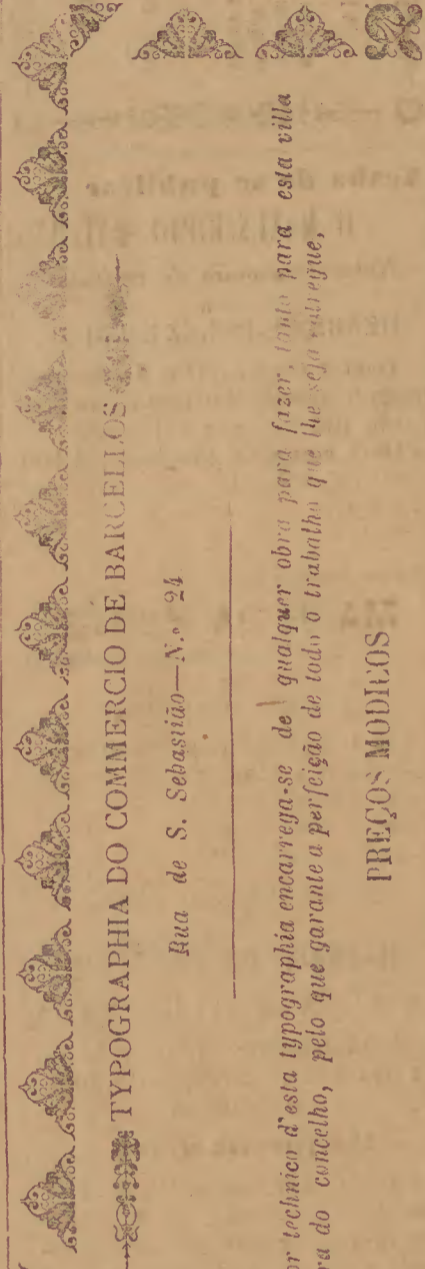 TYPOGRAPHIA DO COMMERCIO DE BARCELLOS
Rua de S. Sebastião—N.º 24
or technico d'esta typographia encarrega-se de qualquer obra para fazer, tanto para esta villa
ra do concelho, pelo que garante a perfeição de todo o trabalho que lhe seja entregue,
PREÇOS MODICOS